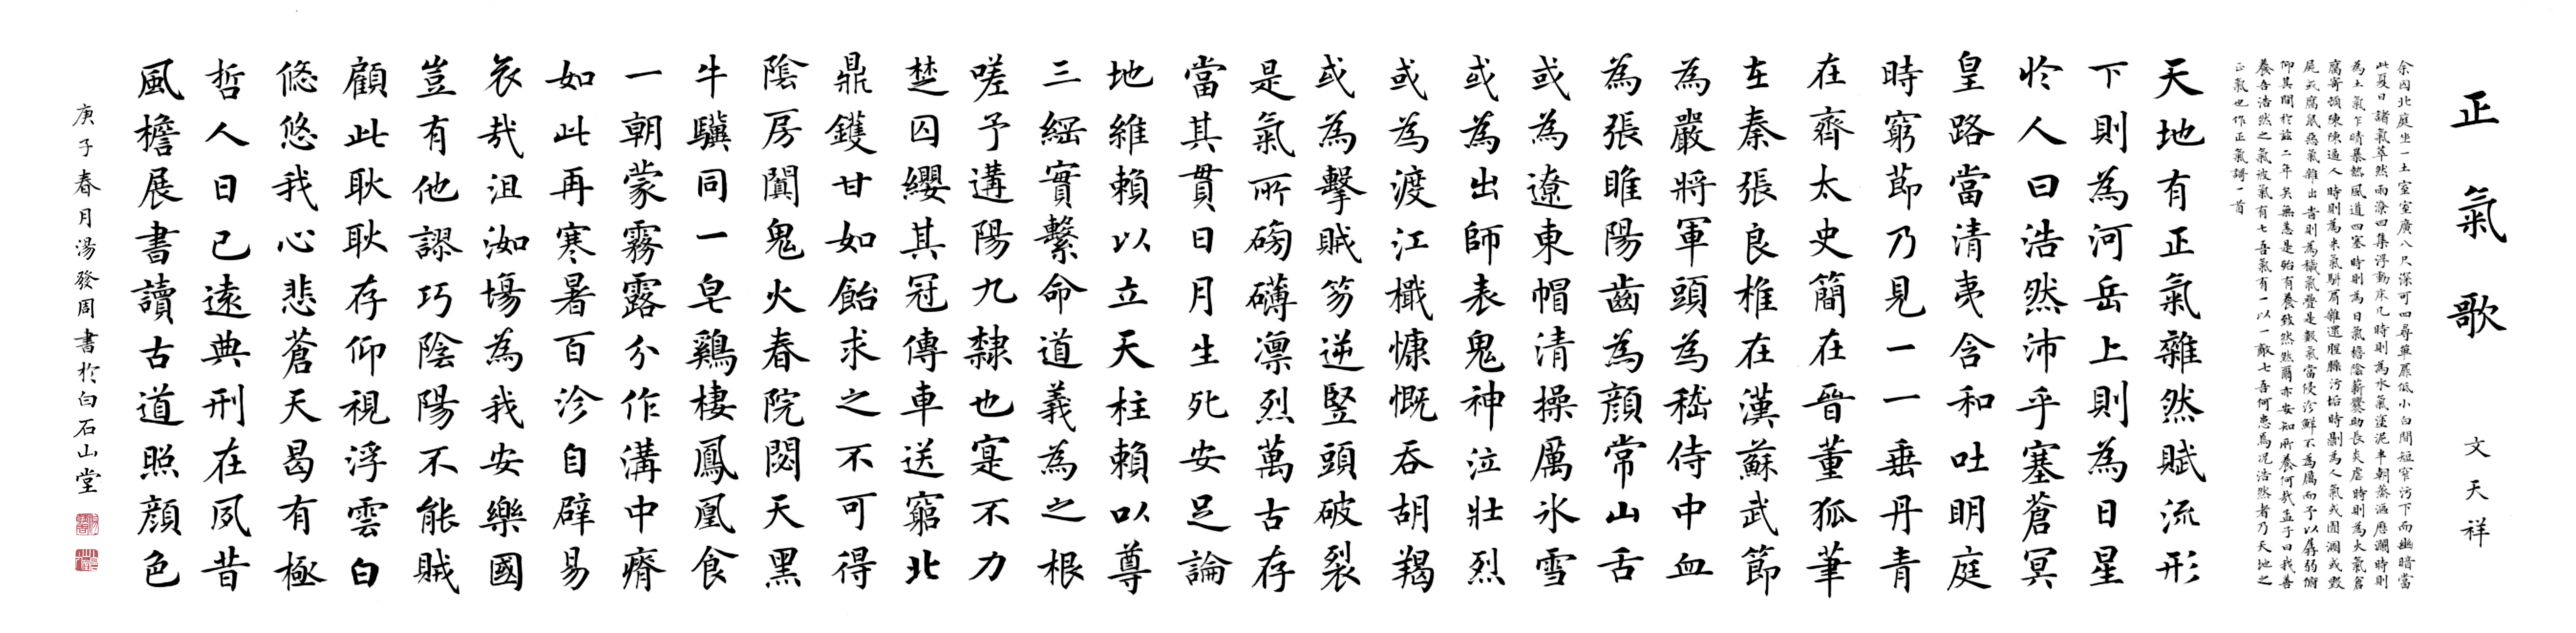 正氣歌
文天祥
余囚北庭坐一土室室廣八尺深可四尋單扉低小白間短窄污下而幽暗當
此夏日諸氣萃然雨潦四集浮動床几時則為水氣塗泥半朝蒸漚歷瀾時則
為土氣乍晴暴熱風道四塞時則為日氣檐陰薪爨助長炎虐時則為火氣倉
腐寄頓陳陳逼人時則為米氣駢肩雜遝腥臊污垢時則為人氣或圊溷或毀
屍或腐鼠惡氣雜出旹則為穢氣疊是數氣當侵沴鮮不為厲而予以孱弱俯
仰其間於茲二年矣無恙是殆有養致然然爾亦安知所養何哉孟子曰我善
養吾浩然之氣彼氣有七吾氣有一以一敵七吾何患焉况浩然者乃天地之
正氣也作正氣謌一首
天地有正氣雜然賦流形
下則為河岳上則為日星
於人曰浩然沛乎塞蒼冥
皇路當清夷含和吐明庭
時窮節乃見一一垂丹青
在齊太史簡在晉董狐筆
在秦張良椎在漢蘇武節
為嚴將軍頭為嵇侍中血
為張睢陽齒為顏常山舌
或為遼東帽清操厲冰雪
或為出師表鬼神泣壯烈
或為渡江檝慷慨吞胡羯
或為擊賊笏逆豎頭破裂
是氣所磅礴凛烈萬古存
當其貫日月生死安足論
地維賴以立天柱賴以尊
三綱實繫命道義為之根
嗟予遘陽九隸也寔不力
楚囚纓其冠傳車送窮北
鼎鑊甘如飴求之不可得
陰房闃鬼火春院閟天黑
牛驥同一皂鷄棲鳳凰食
一朝蒙霧露分作溝中瘠
如此再寒暑百沴自辟易
哀哉沮洳場為我安樂國
豈有他謬巧陰陽不能賊
顧此耿耿存仰視浮雲白
悠悠我心悲蒼天曷有極
哲人日已遠典刑在夙昔
風檐展書讀古道照顏色
庚子春月湯發周書於白石山堂